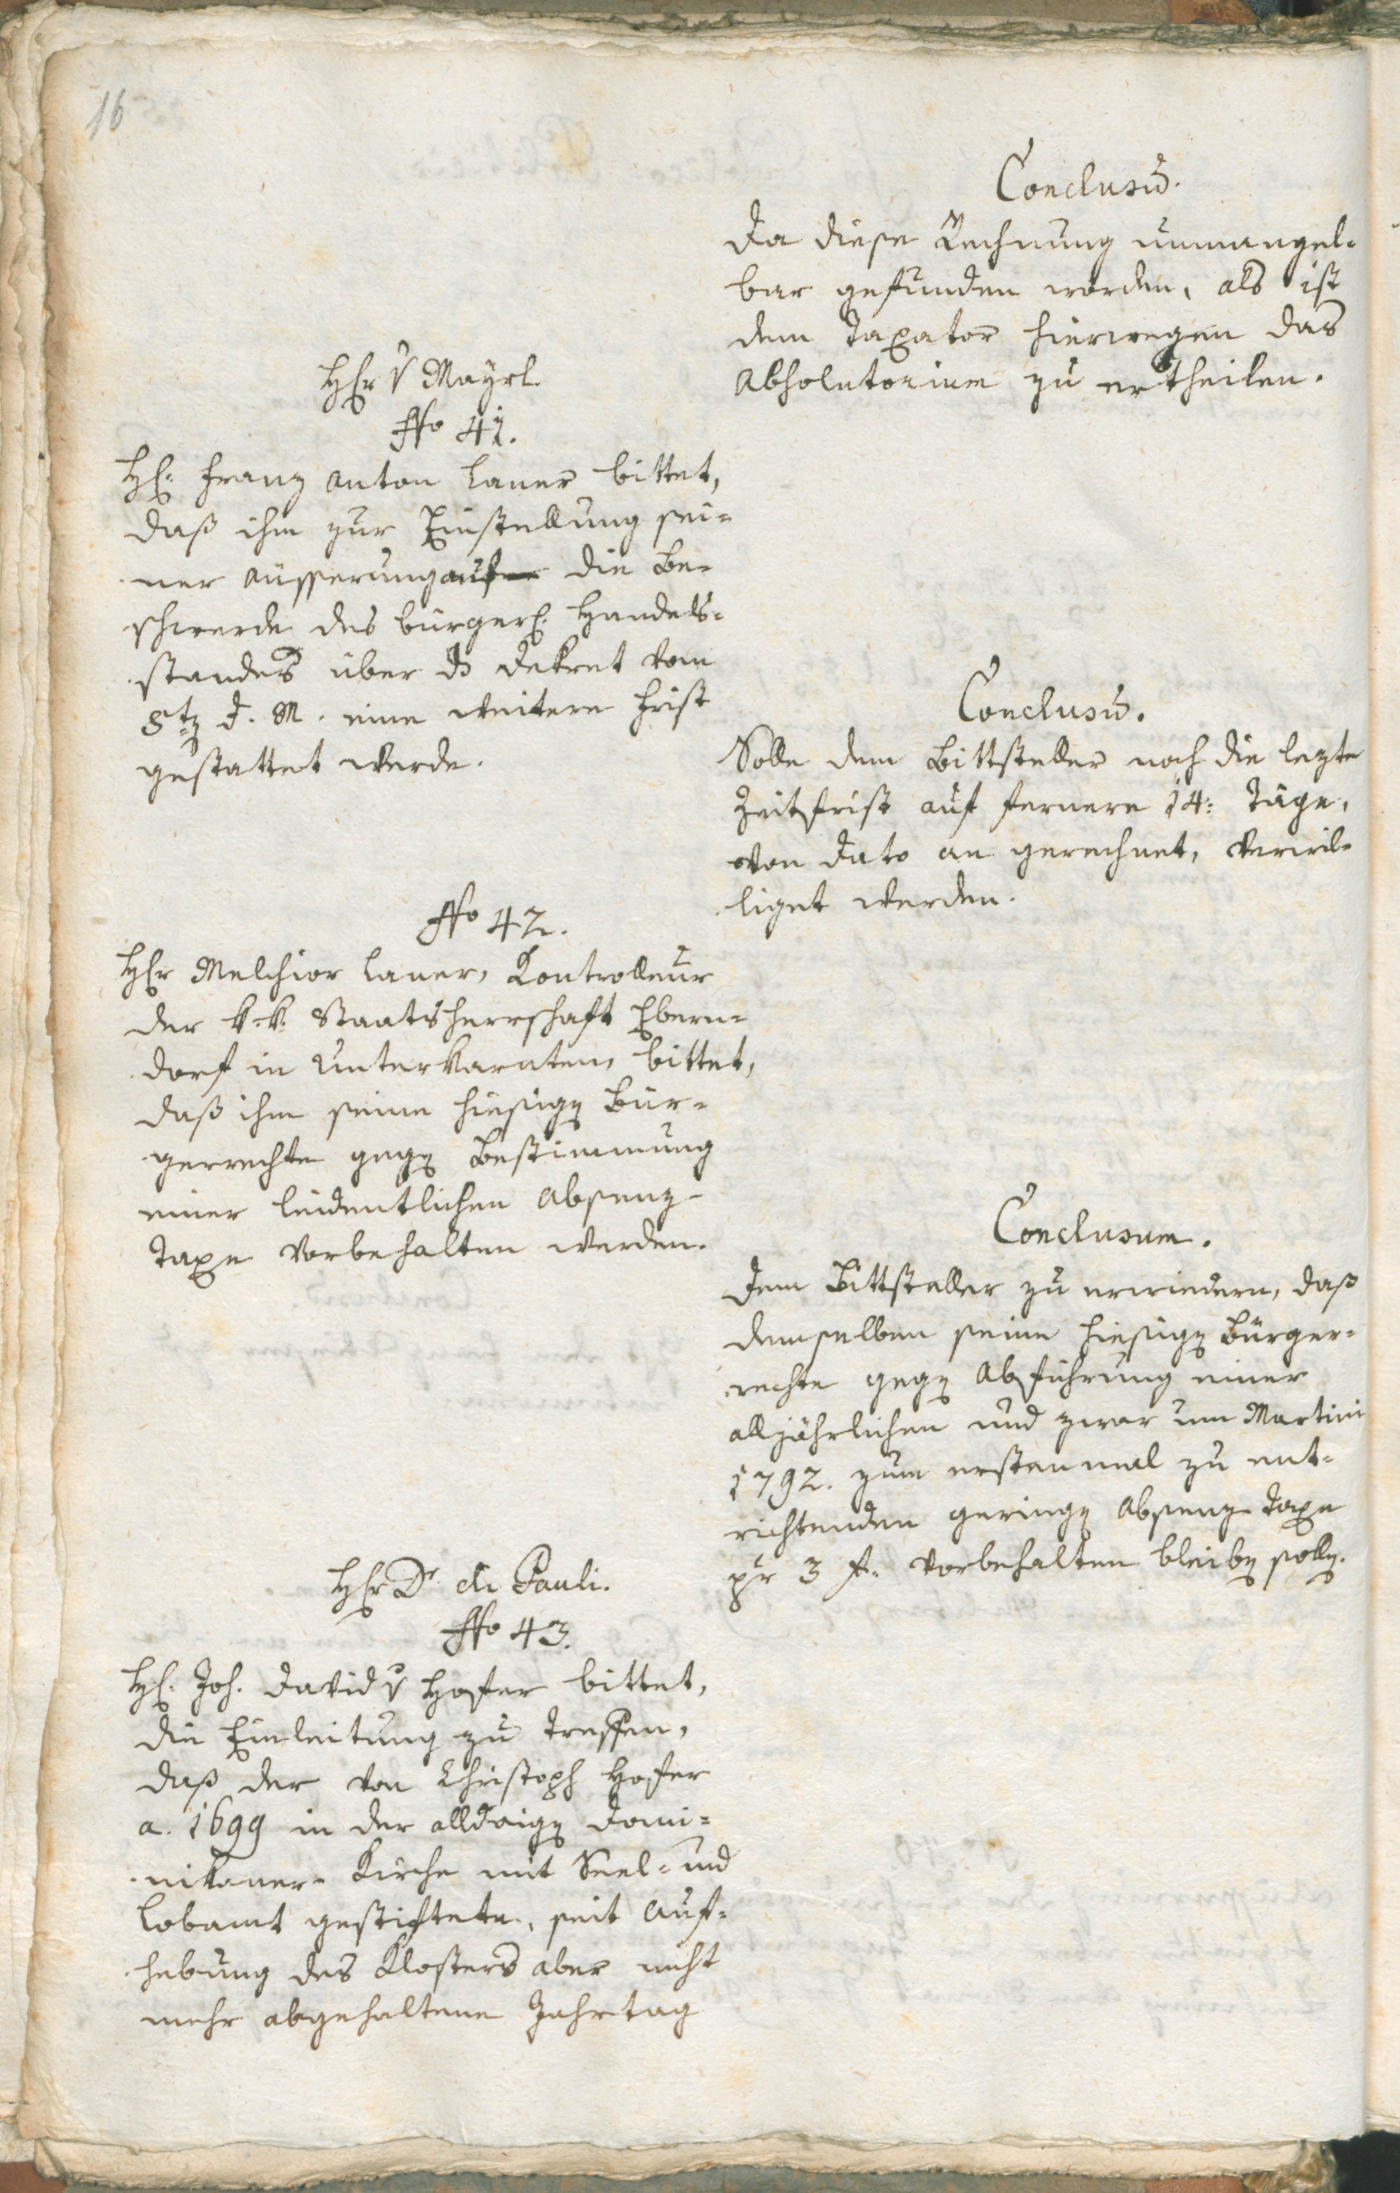 16
Conclusū.
Da diese Rechnung unmangel-
bar gefunden worden, als ist
dem Taxator hierwegen das
Absolutorium zu ertheilen.
Hr v Mayrl.
No 41.
H: Franz Anton Laner bittet,
daß ihm zur Einstellung sei-
ner Äusserung auf die Be-
schwerde des bürgerl: Handels-
standes über do Dekret vom
8ten d. M. eine weitere Frist
gestattet werde.
Conclusū.
Solle dem Bittsteller noch die lezte
Zeitfrist auf fernere 14: Täge,
von Dato an gerechnet, verwil-
liget werden.
No 42.
Hr Melchior Laner, Kontrolleur
der k:k: Staatsherrschaft Ebern-
dorf in Unterkärnten, bittet,
daß ihm seine hiesigen Bür-
gerrechte gegen Bestimmung
einer leidentlichen Absenz-
Taxe vorbehalten werden.
Conclusum.
Dem Bittsteller zu erwiedern, daß
demselben seine hiesigen Bürger-
rechte gegen Abführung einer
alljährlichen und zwar um Martini
1792. zum erstenmal zu ent-
richtenden geringen Absenz-Taxe
pr 3 f. vorbehalten bleiben sollen.
Hr Dr di Pauli.
No 43.
H: Joh. David v Hofer bittet,
die Einleitung zu treffen,
daß der von Christoph Hofer
a. 1699 in der alldaigen Domi-
nikaner-Kirche mit Seel- und
Lobamt gestiftete, seit Auf-
hebung des Klosters aber nicht
mehr abgehaltene Jahrtag